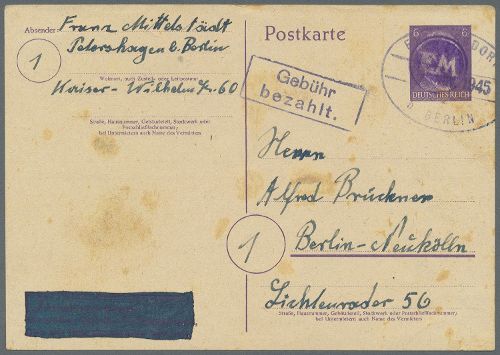 Absender: Franz Mittelstädt
Petershagen b. Berlin
1
Wohnort, auch Zustell- oder Leitpostamt
Kaiser-Wilhelmstr. 60
Straße, Hausnummer, Gebäudeteil, Stockwerk oder
Postschließfachnummer;
bei Untermietern auch Name des Vermieters
Postkarte
Gebühr
bezahlt.
6 6
DEUTSCHES REICH
1945
BERLIN
Herrn
Alfred Brückner
1
Berlin-Neukölln
Lichtenrader 56
Straße, Hausnummer, Gebäudeteil, Stockwerk oder Postschließfachnummer,
bei Untermietern auch Name des Vermieters